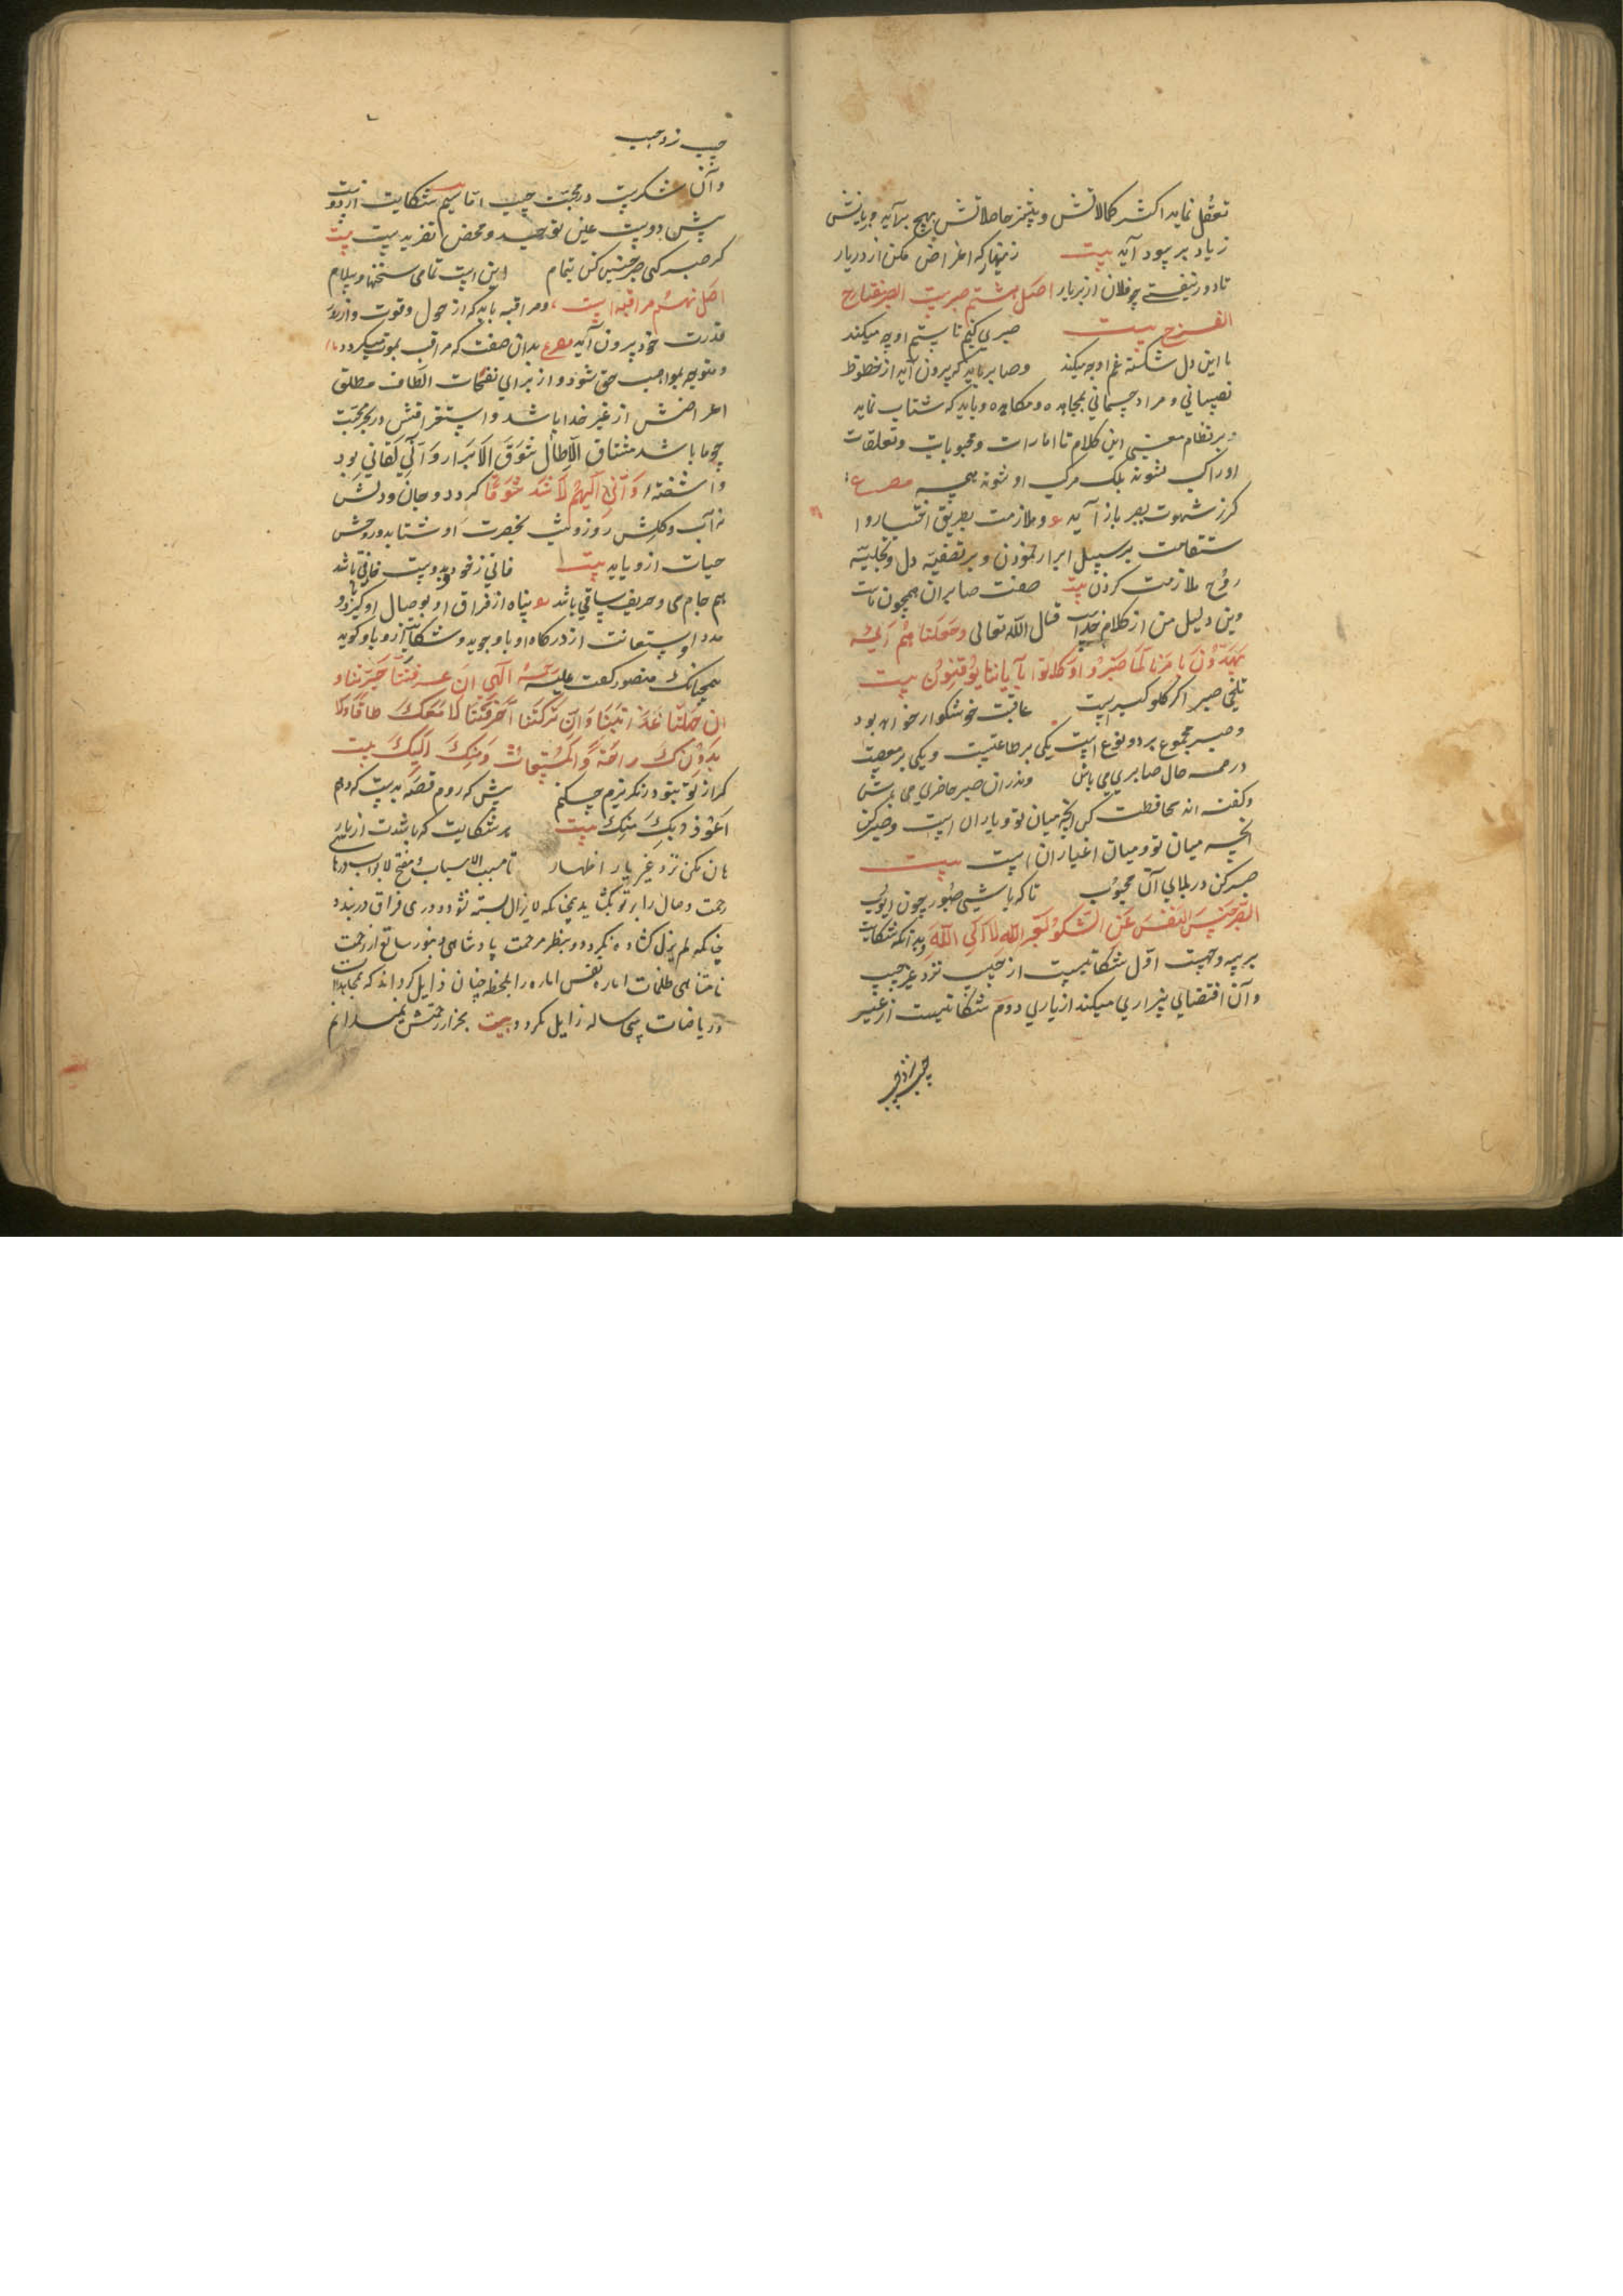 تعقل نماید اکثر کمالاتش و بیشتر حاصلاتش بهیچ برآید و زیانش
زیاد بر سود آید بیت زینهار که اعراض مکن از در یار
تا دور نیفتی چو فلان از بر یار اصل هشتم صبرست الصبر مفتاح
الفرج بیت صبری کنیم تا ستم او چه میکند
با این دل شکسته غم او چه میکند و صابر باید که بیرون آید از حظوظ
نفسانی و مراد جسمانی بمجاهده و مکابده و باید که شتاب نماید
و بر نظام معنی این کلام تا امارات و محبوبات و تعلقات
او راکب نشوند بلک مرکب او شوند همه مصرع
کرز شهوت بصبر باز آید و ملازمت بطریق اختیار و ا
ستقامت بر سبیل ابرار نمودن و بر تصفیه دل و تجلیه
روح ملازمت کردن بیت صفت صابران همچون ماست
وین دلیل من از کلام خداست قال الله تعالی وجعلنا منهم ائمة
یهدون بامرنا لما صبروا وکانوا بآیاتنا یوقنون بیت
تلخی صبر اگر گلو گیرست عاقبت خوشگوار خواهد بود
و صبر مجموع بر دو نوع است یکی بر طاعتست و یکی بر معصیت
در همه حال صابری می باش وندران صبر حاضری می باش
و گفته اند محافظت کن آنچه میان تو و یاران است و صبر کن
آنچه میان تو و میان اغیاران است بیت
صبر کن در بلای آن محبوب تا که باشی صبور چون ایوب
الصبر حبس النفس عن الشکو لغیر الله لا الی الله و بدانکه شکایت
بر سه وجهست اول شکایتیست از حبیب نزد غیر حبیب
و آن اقتضای بیزاری میکند از یاری دوم شکایتیست از غیر
حبیب نزد حبیب
حبیب نزد حبیب
و آن شکریست در محبت حبیب اما سیم شکایت از دوست
پیش دوست عین توحید و محض تفریدست بیت
گر صبر کنی صبر چنین کن بتمام این است تمامی سخنها و سلام
اصل نهم مراقبه است و مراقبه باید که از حول و قوت و از
قدرت خود بیرون آید مصرع بدان صفت که مراقب بموت میگردد
و متوجه بمواهب حق شود و از برای نفحات الطاف مطلق
اعراضش از غیر خدا باشد و استغراقش در بحر محبت
چو ما باشد مشتاق الا طال شوق الابرار و الی لقائی بود
و آشفته وانی الیهم لاشد شوقا گردد و جان و دلش
ز آب و گلش روز و شب بحضرت او شتابد و روحش
حیات ازو یابد بیت فانی ز خود و بدوست باقی باشد
هم جام می و حریف ساقی باشد و پناه از فراق او بوصال او گیرد و
مدد و استعانت از درگاه او باو جوید و شکایت ازو باو گوید
همچنانک منصور گفت علیه الهی ان عرفتنا حیرتنا و
ان جهلنا عذبتنا وان ترکتنا احرقتنا لا معک طاقة ولا
بدونک راحة والمستغاث ومنک الیک بیت
گر از تو بتو در نگریزم چه کنم پیش که روم قصه بدست که دهم
اعوذ بک منک بیت هر شکایت که باشدت از یار
هان مکن نزد غیر یار اظهار تا مسبب الاسباب و مفتح الابواب درهای
رحمت وصال را بر تو بگشاید چنانکه لا یزال بسته نشود و دری فراق در بندد
چنانکه لم یزل گشاده نگردد و بنظر مرحمت پادشاهی و بنور ساطع از رحمت
نامتناهی ظلمات اماره نفس اماره را بلحظه چنان زایل گرداند که بمجاهدات
و ریاضات سی ساله زایل نگردد بیت بجز از رحمتش نمیدانم